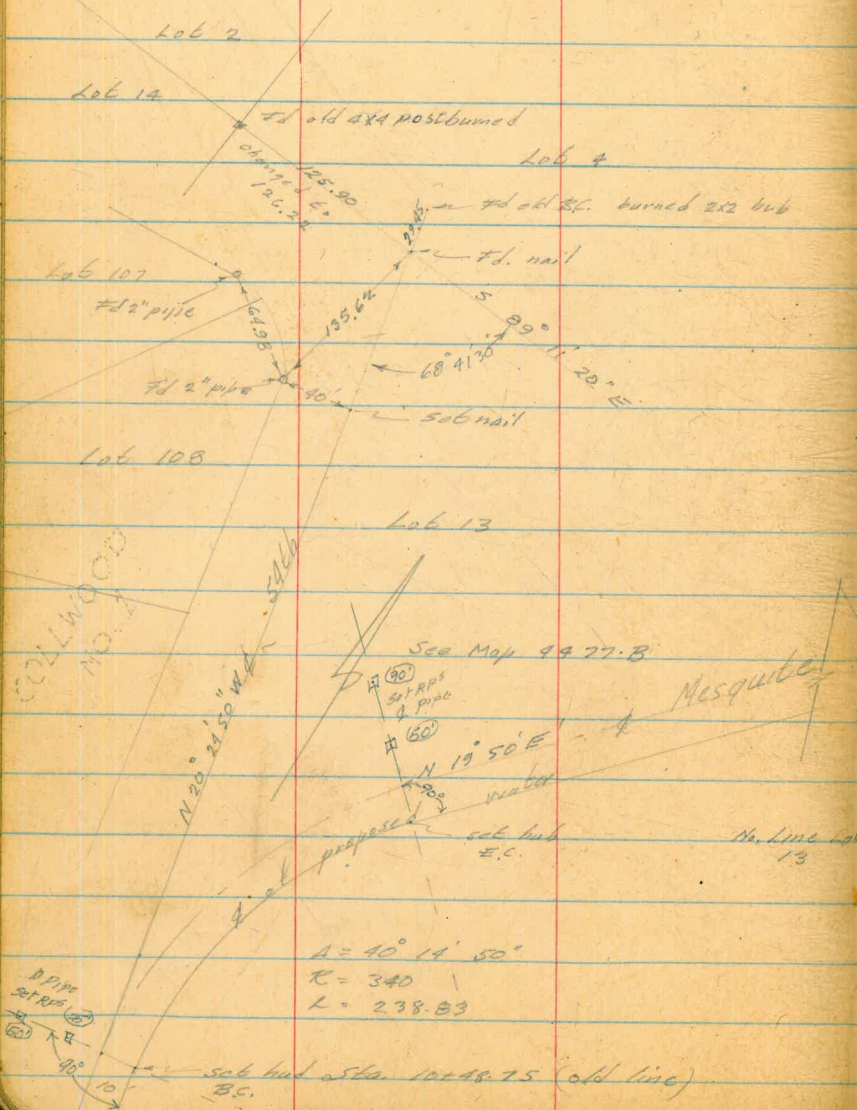 Lot 2
Lot 14
Fd old 4x4 post burned
Lot 4
125.90
changed to
126.22
29.45
Fd old B.C. burned 2x2 hub
Fd. nail
Lot 107
Fd 2" pipe
64.98
135.62
S 89° 11' 20" E
68° 41' 30"
Fd 2" pipe
40'
Set nail
Lot 108
Lot 13
COLLWOOD
NO. 1
54th
N 20° 24' 50" W ¢
See Map 4477-B
90'
Set RPS
pipe
50'
Mesquite
N 19° 50' E
90°
¢ of proposed water
set hub
E.C.
No. Line Lot
13
Δ = 40° 14' 50"
R = 340
L = 238.83
pipe
set RPS
50'
90°
10
set hub Sta. 10+48.75 (old line)
B.C.